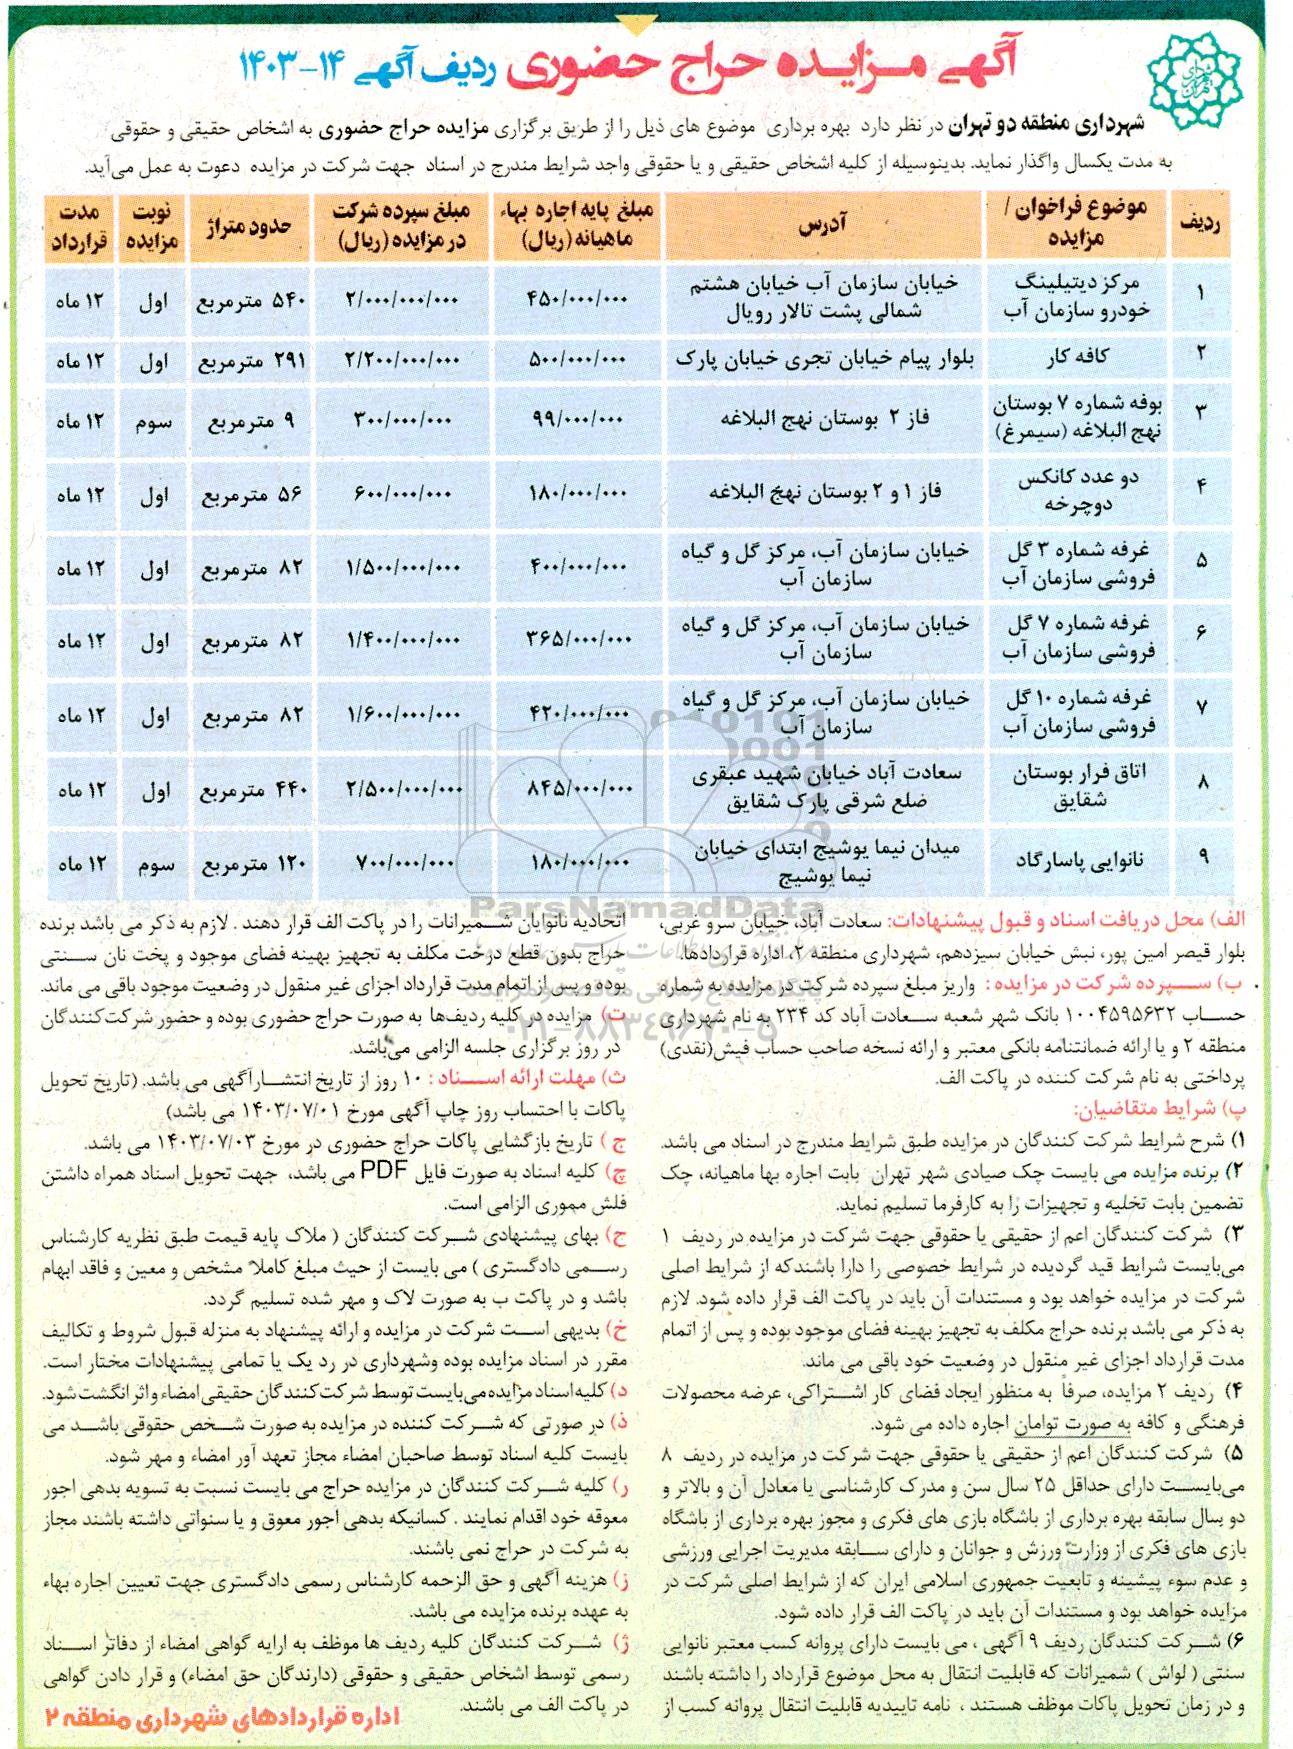 آگهی مزایده حراج حضوری ردیف آگهی ۱۴-۱۴۰۳
شهرداری منطقه دو تهران در نظر دارد بهره برداری موضوع های ذیل را از طریق برگزاری مزایده حراج حضوری به اشخاص حقیقی و حقوقی
به مدت یکسال واگذار نماید. بدینوسیله از کلیه اشخاص حقیقی و یا حقوقی واجد شرایط مندرج در اسناد جهت شرکت در مزایده دعوت به عمل می‌آید.
ردیف | موضوع فراخوان / مزایده | آدرس | مبلغ پایه اجاره بهاء ماهیانه (ریال) | مبلغ سپرده شرکت در مزایده (ریال) | حدود متراژ | نوبت مزایده | مدت قرارداد
۱ | مرکز دیتیلینگ خودرو سازمان آب | خیابان سازمان آب خیابان هشتم شمالی پشت تالار رویال | ۴۵۰/۰۰۰/۰۰۰ | ۲/۰۰۰/۰۰۰/۰۰۰ | ۵۴۰ مترمربع | اول | ۱۲ ماه
۲ | کافه کار | بلوار پیام خیابان تجری خیابان پارک | ۵۰۰/۰۰۰/۰۰۰ | ۲/۲۰۰/۰۰۰/۰۰۰ | ۲۹۱ مترمربع | اول | ۱۲ ماه
۳ | بوفه شماره ۷ بوستان نهج البلاغه (سیمرغ) | فاز ۲ بوستان نهج البلاغه | ۹۹/۰۰۰/۰۰۰ | ۳۰۰/۰۰۰/۰۰۰ | ۹ مترمربع | سوم | ۱۲ ماه
۴ | دو عدد کانکس دوچرخه | فاز ۱ و ۲ بوستان نهج البلاغه | ۱۸۰/۰۰۰/۰۰۰ | ۶۰۰/۰۰۰/۰۰۰ | ۵۶ مترمربع | اول | ۱۲ ماه
۵ | غرفه شماره ۳ گل فروشی سازمان آب | خیابان سازمان آب، مرکز گل و گیاه سازمان آب | ۴۰۰/۰۰۰/۰۰۰ | ۱/۵۰۰/۰۰۰/۰۰۰ | ۸۲ مترمربع | اول | ۱۲ ماه
۶ | غرفه شماره ۷ گل فروشی سازمان آب | خیابان سازمان آب، مرکز گل و گیاه سازمان آب | ۳۶۵/۰۰۰/۰۰۰ | ۱/۴۰۰/۰۰۰/۰۰۰ | ۸۲ مترمربع | اول | ۱۲ ماه
۷ | غرفه شماره ۱۰ گل فروشی سازمان آب | خیابان سازمان آب، مرکز گل و گیاه سازمان آب | ۴۲۰/۰۰۰/۰۰۰ | ۱/۶۰۰/۰۰۰/۰۰۰ | ۸۲ مترمربع | اول | ۱۲ ماه
۸ | اتاق فرار بوستان شقایق | سعادت آباد خیابان شهید عبقری ضلع شرقی پارک شقایق | ۸۴۵/۰۰۰/۰۰۰ | ۲/۵۰۰/۰۰۰/۰۰۰ | ۴۴۰ مترمربع | اول | ۱۲ ماه
۹ | نانوایی پاسارگاد | میدان نیما یوشیج ابتدای خیابان نیما یوشیج | ۱۸۰/۰۰۰/۰۰۰ | ۷۰۰/۰۰۰/۰۰۰ | ۱۲۰ مترمربع | سوم | ۱۲ ماه
ParsNamadData
۰۲۱-۸۸۳۴۹۶۷۰-۵
الف) محل دریافت اسناد و قبول پیشنهادات: سعادت آباد، خیابان سرو غربی،
بلوار قیصر امین پور، نبش خیابان سیزدهم، شهرداری منطقه ۲، اداره قراردادها.
ب) سپرده شرکت در مزایده : واریز مبلغ سپرده شرکت در مزایده به شماره
حساب ۱۰۰۴۵۹۵۶۳۲ بانک شهر شعبه سعادت آباد کد ۲۳۴ به نام شهرداری
منطقه ۲ و یا ارائه ضمانتنامه بانکی معتبر و ارائه نسخه صاحب حساب فیش(نقدی)
پرداختی به نام شرکت کننده در پاکت الف.
پ) شرایط متقاضیان:
۱) شرح شرایط شرکت کنندگان در مزایده طبق شرایط مندرج در اسناد می باشد.
۲) برنده مزایده می بایست چک صیادی شهر تهران بابت اجاره بها ماهیانه، چک
تضمین بابت تخلیه و تجهیزات را به کارفرما تسلیم نماید.
۳) شرکت کنندگان اعم از حقیقی یا حقوقی جهت شرکت در مزایده در ردیف ۱
می‌بایست شرایط قید گردیده در شرایط خصوصی را دارا باشندکه از شرایط اصلی
شرکت در مزایده خواهد بود و مستندات آن باید در پاکت الف قرار داده شود. لازم
به ذکر می باشد برنده حراج مکلف به تجهیز بهینه فضای موجود بوده و پس از اتمام
مدت قرارداد اجزای غیر منقول در وضعیت خود باقی می ماند.
۴) ردیف ۲ مزایده، صرفاً به منظور ایجاد فضای کار اشتراکی، عرضه محصولات
فرهنگی و کافه به صورت توامان اجاره داده می شود.
۵) شرکت کنندگان اعم از حقیقی یا حقوقی جهت شرکت در مزایده در ردیف ۸
می‌بایست دارای حداقل ۲۵ سال سن و مدرک کارشناسی یا معادل آن و بالاتر و
دو سال سابقه بهره برداری از باشگاه بازی های فکری و مجوز بهره برداری از باشگاه
بازی های فکری از وزارت ورزش و جوانان و دارای سابقه مدیریت اجرایی ورزشی
و عدم سوء پیشینه و تابعیت جمهوری اسلامی ایران که از شرایط اصلی شرکت در
مزایده خواهد بود و مستندات آن باید در پاکت الف قرار داده شود.
۶) شرکت کنندگان ردیف ۹ آگهی ، می بایست دارای پروانه کسب معتبر نانوایی
سنتی ( لواش ) شمیرانات که قابلیت انتقال به محل موضوع قرارداد را داشته باشند
و در زمان تحویل پاکات موظف هستند ، نامه تاییدیه قابلیت انتقال پروانه کسب از
اتحادیه نانوایان شمیرانات را در پاکت الف قرار دهند . لازم به ذکر می باشد برنده
حراج بدون قطع درخت مکلف به تجهیز بهینه فضای موجود و پخت نان سنتی
بوده و پس از اتمام مدت قرارداد اجزای غیر منقول در وضعیت موجود باقی می ماند.
ت) مزایده در کلیه ردیف‌ها به صورت حراج حضوری بوده و حضور شرکت‌کنندگان
در روز برگزاری جلسه الزامی می‌باشد.
ث) مهلت ارائه اسناد : ۱۰ روز از تاریخ انتشارآگهی می باشد. (تاریخ تحویل
پاکات با احتساب روز چاپ آگهی مورخ ۱۴۰۳/۰۷/۰۱ می باشد)
ج ) تاریخ بازگشایی پاکات حراج حضوری در مورخ ۱۴۰۳/۰۷/۰۳ می باشد.
چ) کلیه اسناد به صورت فایل PDF می باشد، جهت تحویل اسناد همراه داشتن
فلش مموری الزامی است.
ح) بهای پیشنهادی شرکت کنندگان ( ملاک پایه قیمت طبق نظریه کارشناس
رسمی دادگستری ) می بایست از حیث مبلغ کاملاً مشخص و معین و فاقد ابهام
باشد و در پاکت ب به صورت لاک و مهر شده تسلیم گردد.
خ) بدیهی است شرکت در مزایده و ارائه پیشنهاد به منزله قبول شروط و تکالیف
مقرر در اسناد مزایده بوده وشهرداری در رد یک یا تمامی پیشنهادات مختار است.
د) کلیه اسناد مزایده می‌بایست توسط شرکت‌کنندگان حقیقی امضاء و اثر انگشت شود.
ذ) در صورتی که شرکت کننده در مزایده به صورت شخص حقوقی باشد می
بایست کلیه اسناد توسط صاحبان امضاء مجاز تعهد آور امضاء و مهر شود.
ر) کلیه شرکت کنندگان در مزایده حراج می بایست نسبت به تسویه بدهی اجور
معوقه خود اقدام نمایند . کسانیکه بدهی اجور معوق و یا سنواتی داشته باشند مجاز
به شرکت در حراج نمی باشند.
ز) هزینه آگهی و حق الزحمه کارشناس رسمی دادگستری جهت تعیین اجاره بهاء
به عهده برنده مزایده می باشد.
ژ) شرکت کنندگان کلیه ردیف ها موظف به ارایه گواهی امضاء از دفاتر اسناد
رسمی توسط اشخاص حقیقی و حقوقی (دارندگان حق امضاء) و قرار دادن گواهی
در پاکت الف می باشند.
اداره قراردادهای شهرداری منطقه ۲